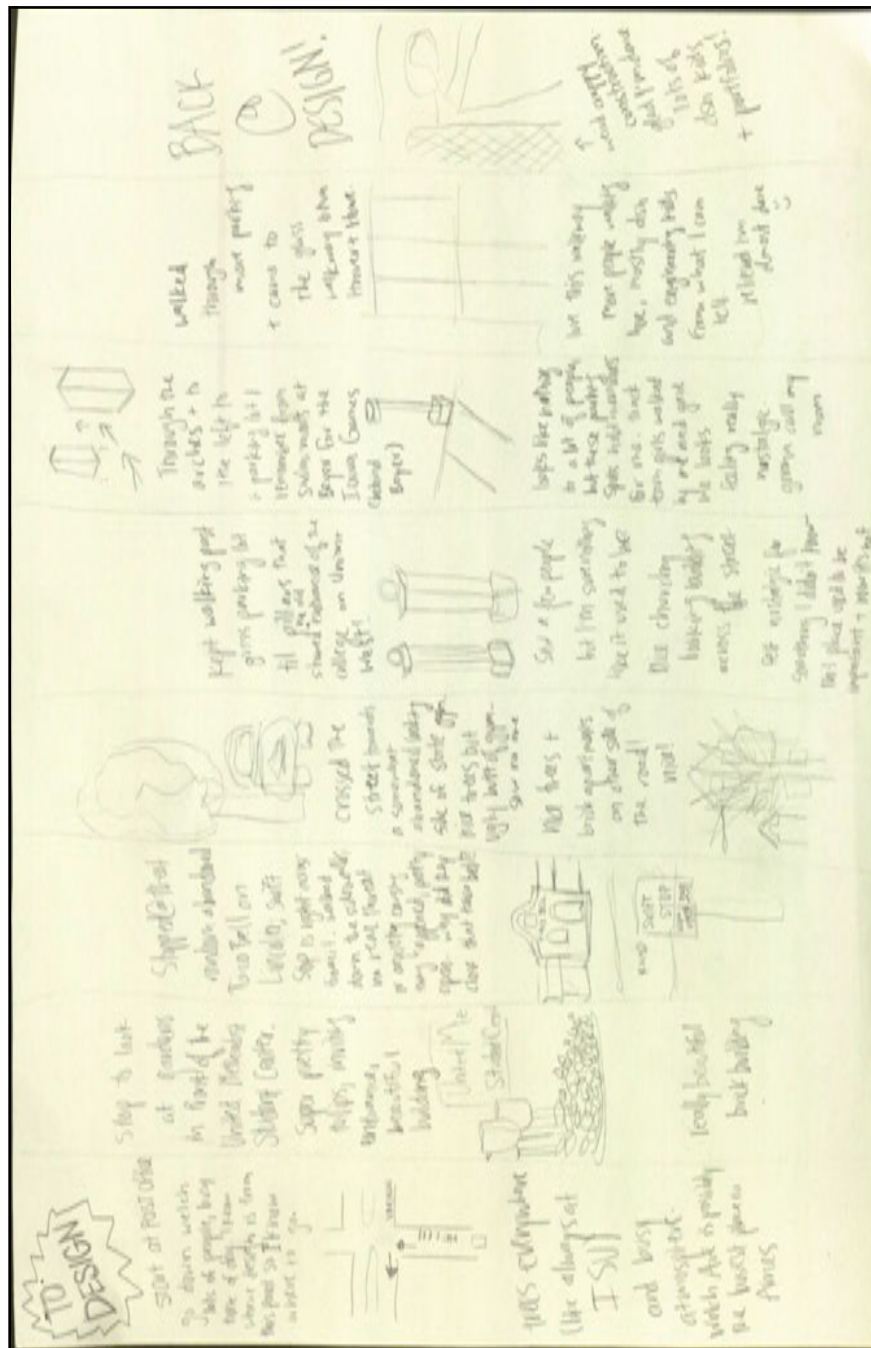 TO:
DESIGN
start at Post Office
go down welch
lots of people, busy
time of day. I know
where design is from
this point so I knew
where to go.
WELCH
trees everywhere
(like always at
ISU)
and busy
atmosphere.
Welch Ave is possibly
the busiest place in
Ames
Stop to look
at gardens
in front of the
United Methodist
Student Center.
Super pretty
tulips, inviting
entrance,
beautiful
building
United Me
Student Cent
really beautiful
brick building
Stopped at that
random abandoned
Taco Bell on
Lincoln, swift
stop is right across
from it. walked
down the sidewalk.
no real threat
or anything causing
any pretty
open. why did they
close that taco bell?
KUM & GO
SWIFT
STOP
crossed the
street towards
a somewhat
abandoned looking
side of state gym
nice trees but
ugly butt of gym.
saw no one
nice trees +
brick apartments
on other side of
the road!
nice!
kept walking past
gyms parking lot
til pillars that
showed the old entrance of the
college on Union
West!
saw a few people
but I'm surrounding
like it used to be
nice churchey
looking building
across the street
get nostalgic for
something I didn't know
this place used to be
important + now it's not
Through the
arches + to
the left is
a parking lot I
remember from
swim meets at
Beyer for the
Iowa Games
(behind
Beyer)
looks like nothing
to a lot of people
but these parking
spots hold memories
for me. Swim
team girls walked
by me and gave
me looks
feeling really
nostalgic.
gonna call my
mom
walked
through
more parking
+ came to
the glass
walkway b/tw
Howe + Hoover
love this walkway
more people walking
here, mostly dsn
and engineering kids
from what I can
tell
relieved im
almost there
:)
BACK
@
DESIGN!
↑
construction
lots of
dsn kids!
+ portfolios!